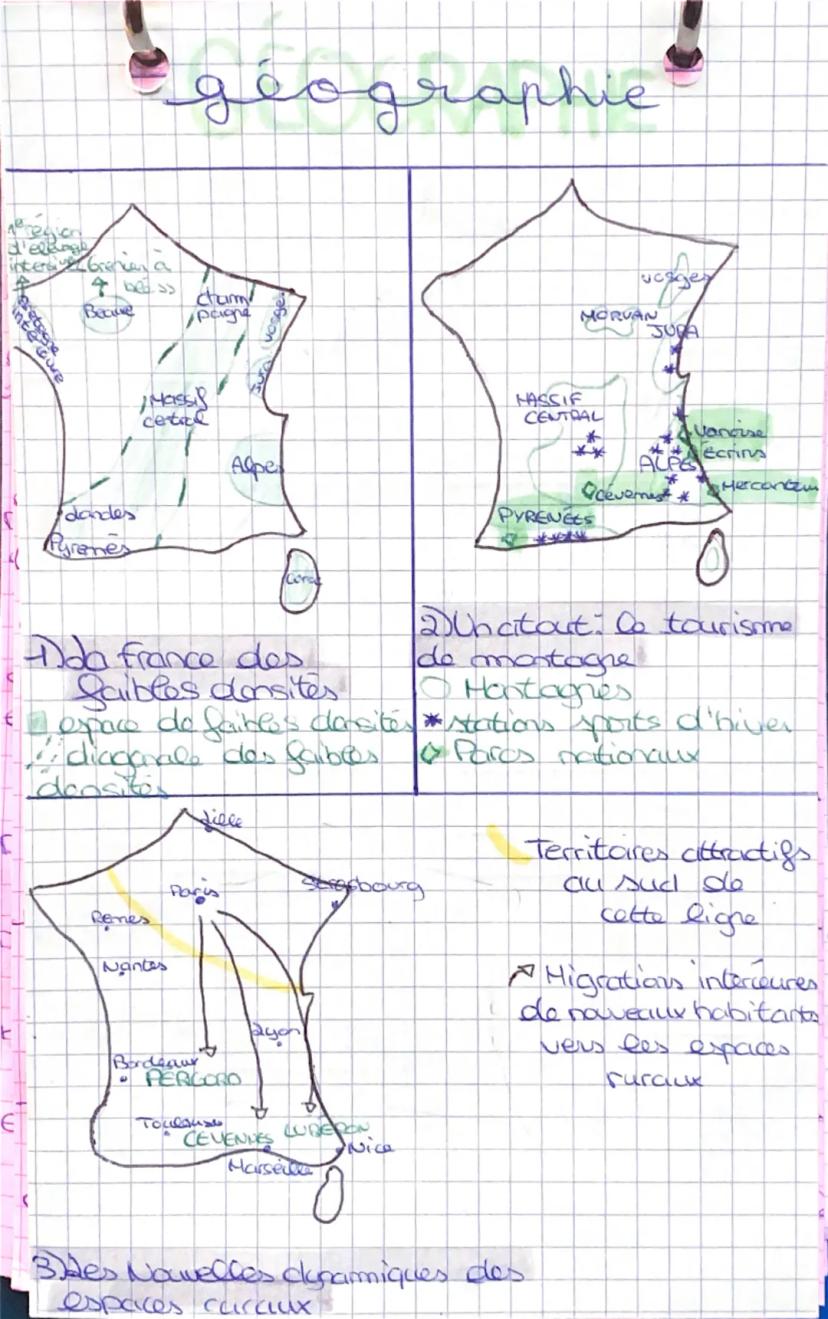 géographie
GÉOGRAPHIE
1e région
d'élevage
intensif
grenier à
blé >>
Bretagne
intérieure
Beauce
Cham
pagne
Vosges
Jura
Massif
central
Alpes
Landes
Pyrenés
Corse
1) La france des
faibles densités
espace de faibles densités
diagonale des faibles
densités
vosges
MORVAN
JURA
MASSIF
CENTRAL
Vanoise
Écrins
ALPES
Mercantour
Cévennes
PYRENÉES
2) Un atout : Le tourisme
de montagne
Montagnes
stations sports d'hiver
Parcs nationaux
Lille
Paris
Strasbourg
Rennes
Nantes
Lyon
Bordeaux
PERGORD
Toulouse
CEVENNES
LUBÉRON
Nice
Marseille
Territoires attractifs
au sud de
cette ligne
Migrations intérieures
de nouveaux habitants
vers les espaces
ruraux
3) Les Nouvelles dynamiques des
espaces ruraux